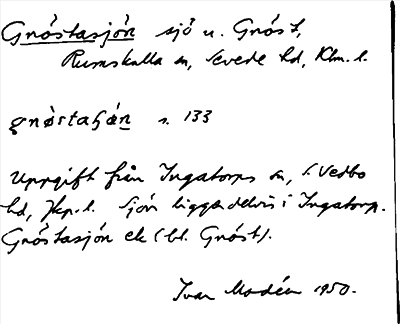 Gnöstasjön sjö u. Gnöst,
Rumskulla sn, Sevede hd, Klm. l.
gnö̀staɧö̀n s. 133
Uppgift från Ingatorps sn, S. Vedbo
hd, Jkp. l. Sjön ligger delvis i Ingatorp.
Gnöstasjön ek (bl. Gnöst).
Ivar Modéer 1950.